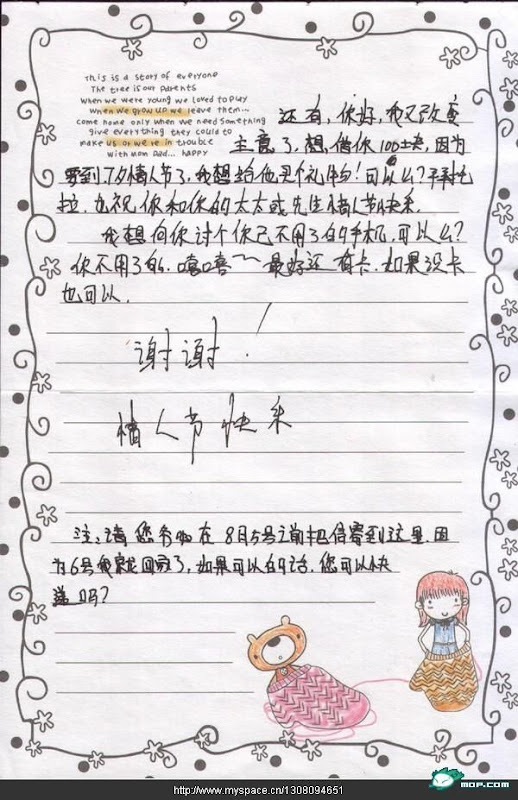 This is a story of everyone
The tree is our parents
When we were young we loved to play
when we grow up we leave them...
come home only when we need something
give everything they could to
make us or we're in trouble
with mom Dad... happy
还有，你好，我又改变
主意了，想借你100块，因为
要到7夕情人节了，我想给他买个礼物！可以么？拜托
拉，也祝你和你的太太或先生情人节快乐．
我想向你讨个你已不用了的手机，可以么？
你不用了的，嘻嘻～最好还有卡．如果没卡
也可以．
谢谢！
情人节快乐
注：请您务必在8月5号之前把信寄到这里．因
为6号我就回家了，如果可以的话，您可以快
递吗？
http://www.myspace.cn/1308094651
MOP.COM